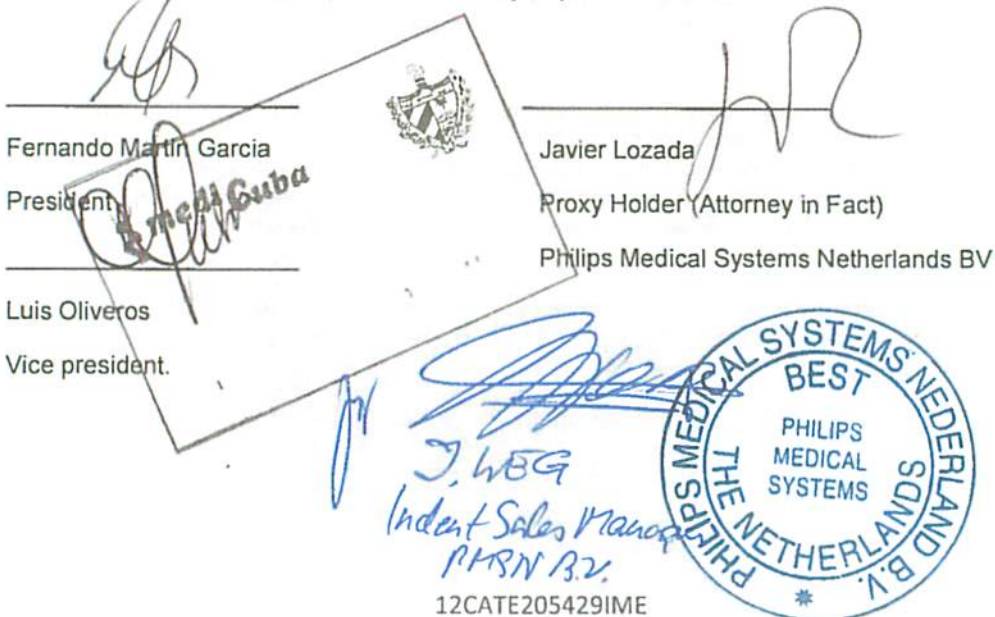 Fernando Martin Garcia
President
medi Cuba
Luis Oliveros
Vice president.
Javier Lozada
Proxy Holder (Attorney in Fact)
Philips Medical Systems Netherlands BV
Indent Sales Manager
B.V.
PHILIPS MEDICAL SYSTEMS NEDERLAND B.V.
BEST
THE NETHERLANDS
PHILIPS
MEDICAL
SYSTEMS
12CATE205429IME